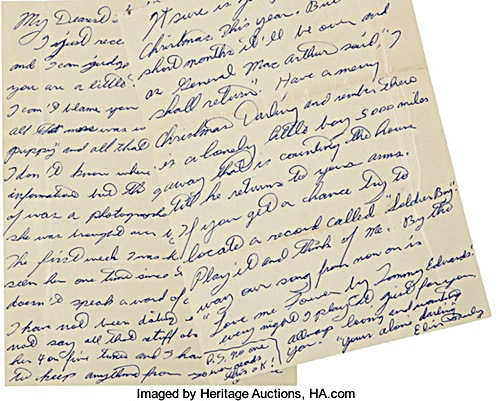 My Dearest:
I just rec
and I can judge
you are a little
I can't blame you
all that mess was
puppy and all that
I don't know where
information but the g
of was a photograph
she was brought over
The first week I was h
seen her one time since
doesn't speak a word of
I have not been
not say all that stuff abo
her 4 or five times and I hav
to keep anything from
It sure is
Christmas this year. But
short months it'll be over and
as General Mac Arthur said "I
shall return". Have a merry
Christmas Darling and remember there
is a lonely little boy 5000 miles
away that is counting the hours
till he returns to your arms.
If you get a chance try to
locate a record called "Soldier Boy"
Play it and think of me. By the
way our song from now on is
"Love me Forever by Tommy Edwards.
every night I played it just for you
always loving and wanting
you. "Yours alone darling
Elvis Presley
P.S. no one
reads
this ok!
Imaged by Heritage Auctions, HA.com